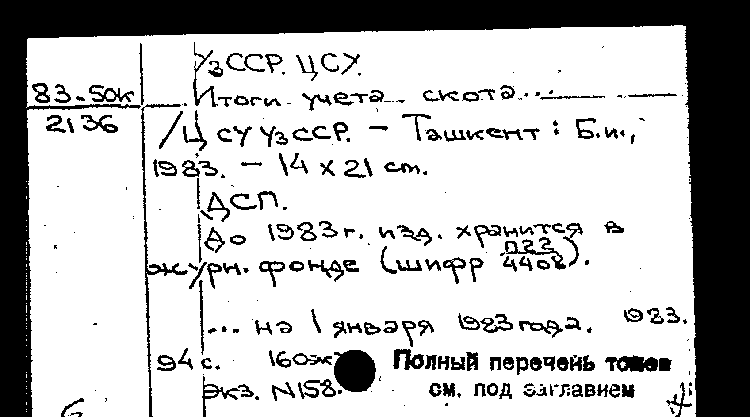 УзССР. ЦСУ.
83-50к
Итоги учета скота...
2136
/ЦСУ УзССР. - Ташкент: Б.и.,
1983. - 14 x 21 см.
ДСП.
До 1983 г. изд. хранится в
журн. фонде (шифр П22/4408).
... на 1 января 1983 года. 1983.
94 с. 160экз
экз. N158.
Полный перечень томов
см. под заглавием